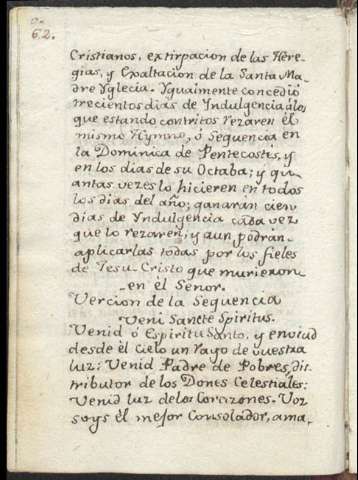 62.
Cristianos, extirpacion de las Here-
gias, y Exaltacion de la Santa Ma-
dre Yglecia. Ygualmente concedió
trecientos dias de Yndulgencia álos
que estando contritos rezaren él
mismo Hymno, ó Sequencia en
la Dominica de Pentecostés, y
en los dias de su Octaba; y qu-
antas vezes lo hicieren en todos
los dias del año; ganarán cien
dias de Yndulgencia cada vez
que lo rezaren; y aun podrán
aplicarlas todas por los fieles
de Jesu-Cristo que murieron
en él Senor.
Vercion de la Sequencia
Veni Sancte Spiritus.
Venid ó Espiritu Santo, y enviad
desde él Cielo un rayo de vuestra
luz: Venid Padre de Pobres, dis-
tributor de los Dones Celestiáles:
Venid luz de los Corazones. Vos
soys él mejor Consolador, ama-